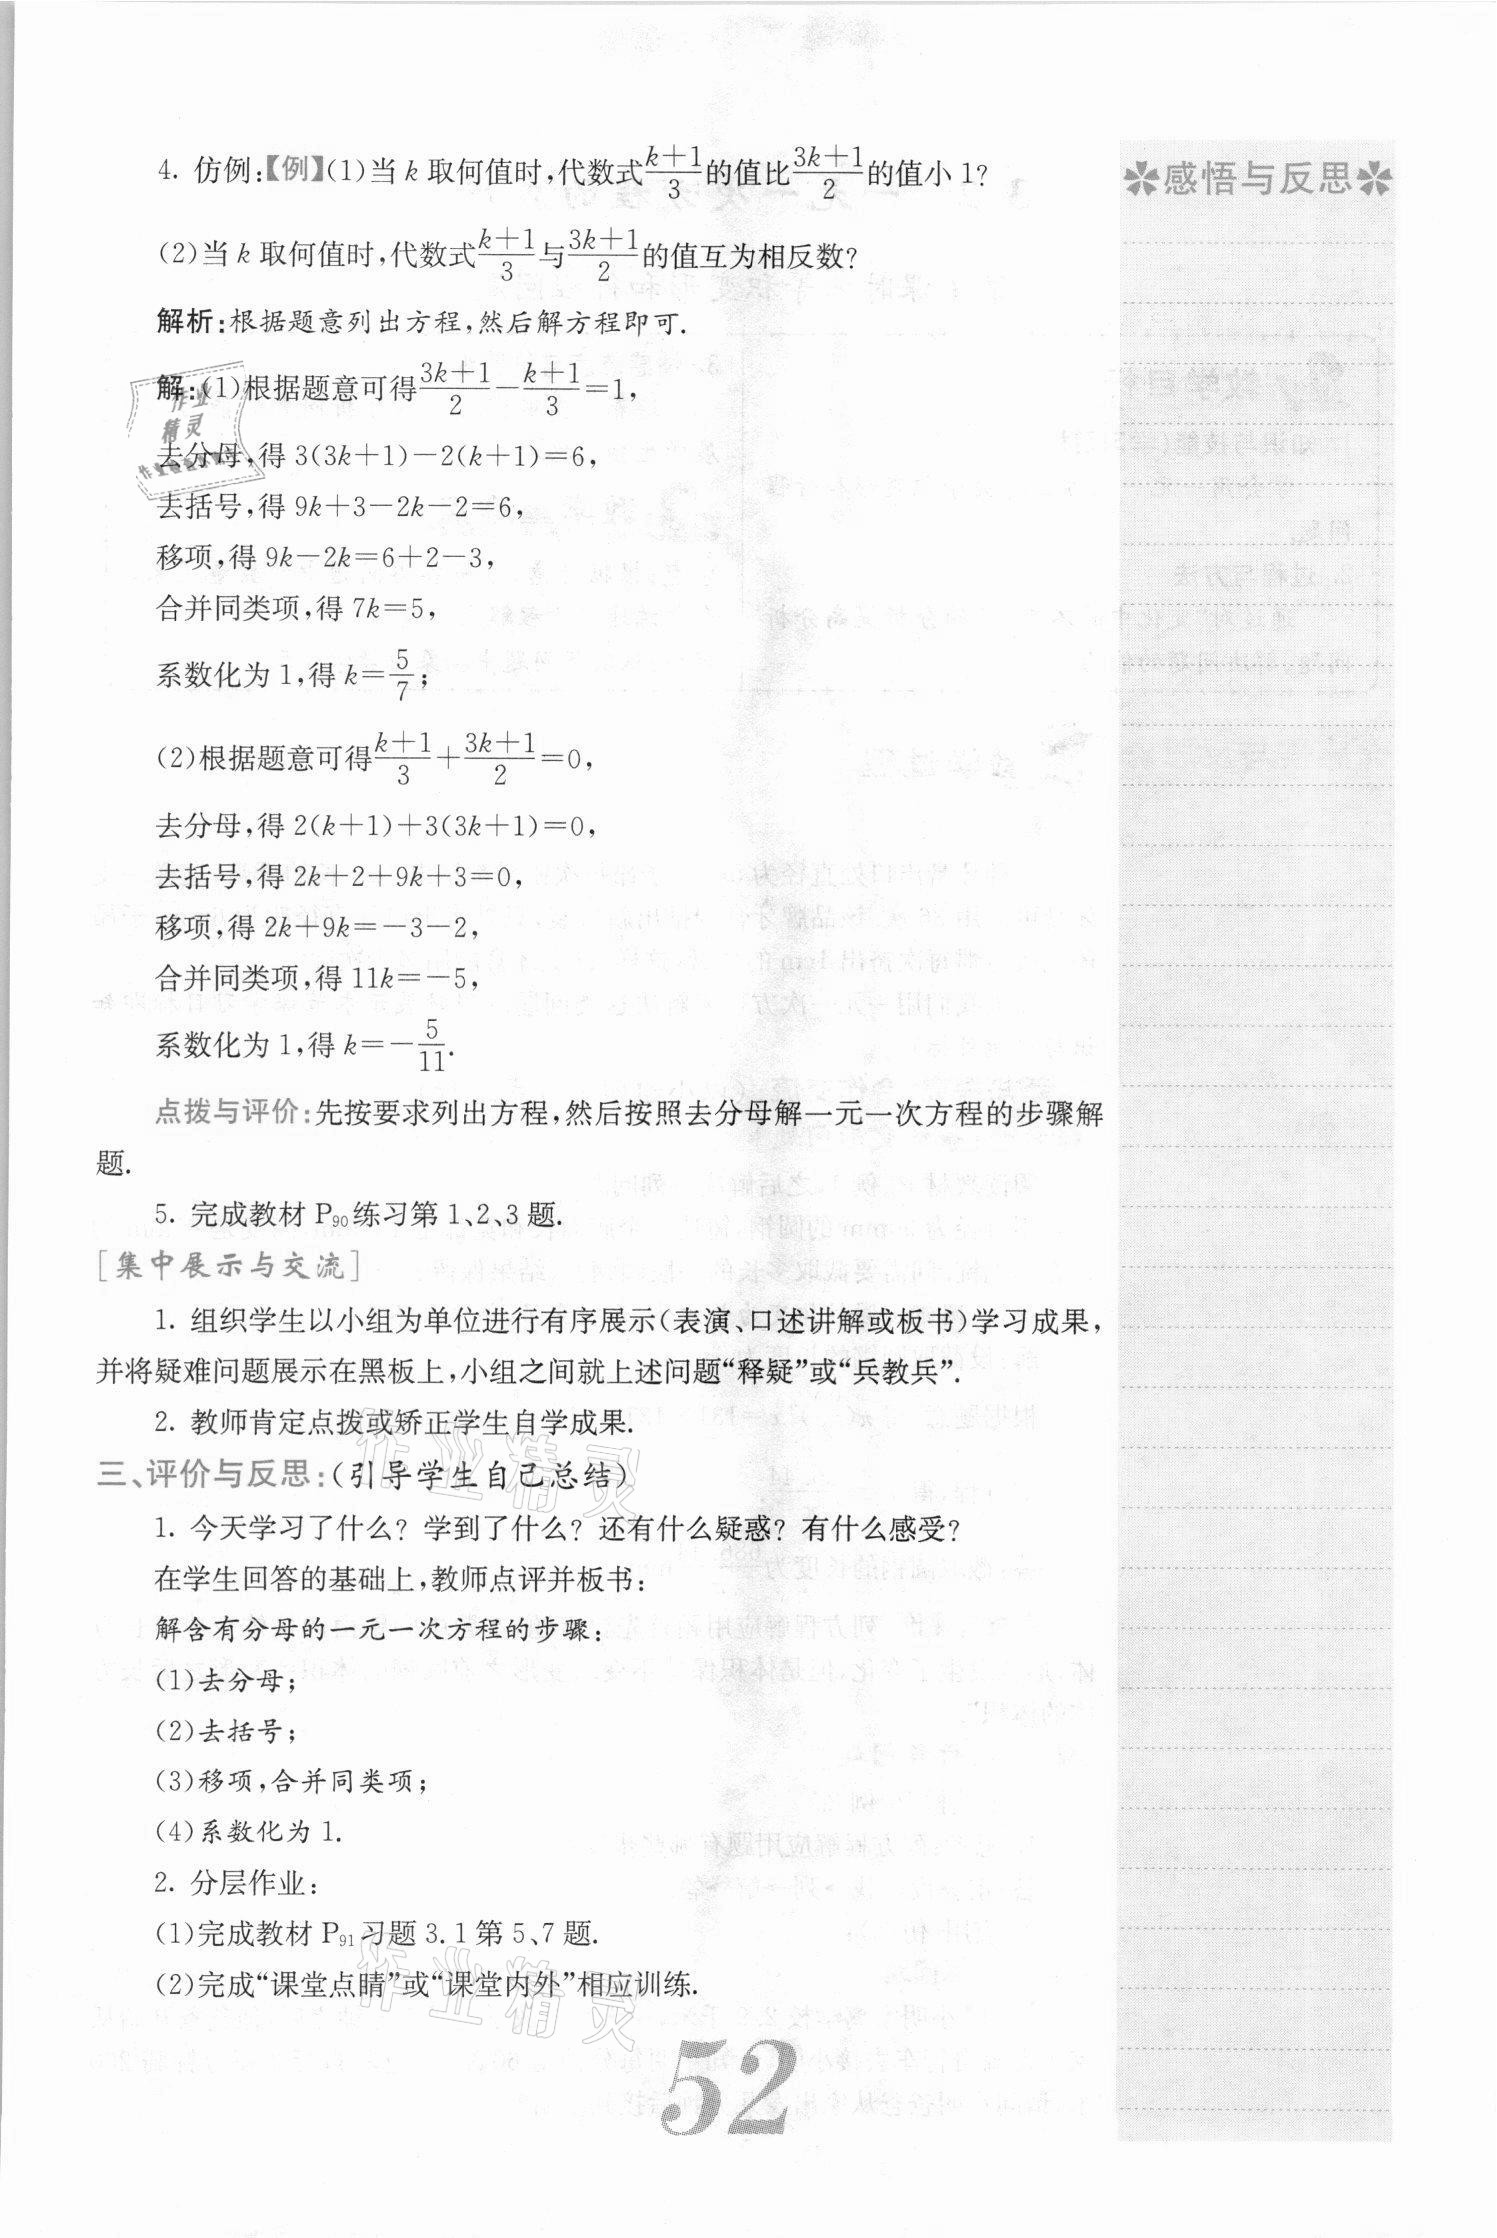 4. 仿例:【例】(1)当 k 取何值时,代数式\frac{k+1}{3}的值比\frac{3k+1}{2}的值小 1?
(2)当 k 取何值时,代数式\frac{k+1}{3}与\frac{3k+1}{2}的值互为相反数?
解析:根据题意列出方程,然后解方程即可.
解:(1)根据题意可得\frac{3k+1}{2}-\frac{k+1}{3}=1,
去分母,得 3(3k+1)-2(k+1)=6,
去括号,得 9k+3-2k-2=6,
移项,得 9k-2k=6+2-3,
合并同类项,得 7k=5,
系数化为 1,得 k=\frac{5}{7};
(2)根据题意可得\frac{k+1}{3}+\frac{3k+1}{2}=0,
去分母,得 2(k+1)+3(3k+1)=0,
去括号,得 2k+2+9k+3=0,
移项,得 2k+9k=-3-2,
合并同类项,得 11k=-5,
系数化为 1,得 k=-\frac{5}{11}.
点拨与评价:先按要求列出方程,然后按照去分母解一元一次方程的步骤解
题.
5. 完成教材 P90练习第 1、2、3 题.
[集中展示与交流]
1. 组织学生以小组为单位进行有序展示(表演、口述讲解或板书)学习成果,
并将疑难问题展示在黑板上,小组之间就上述问题“释疑”或“兵教兵”.
2. 教师肯定点拨或矫正学生自学成果.
三、评价与反思:(引导学生自己总结)
1. 今天学习了什么? 学到了什么? 还有什么疑惑? 有什么感受?
在学生回答的基础上,教师点评并板书:
解含有分母的一元一次方程的步骤:
(1)去分母;
(2)去括号;
(3)移项,合并同类项;
(4)系数化为 1.
2. 分层作业:
(1)完成教材 P91习题 3.1 第 5、7 题.
(2)完成“课堂点睛”或“课堂内外”相应训练.
52
感悟与反思
作业
精灵
作业精灵
作业精灵